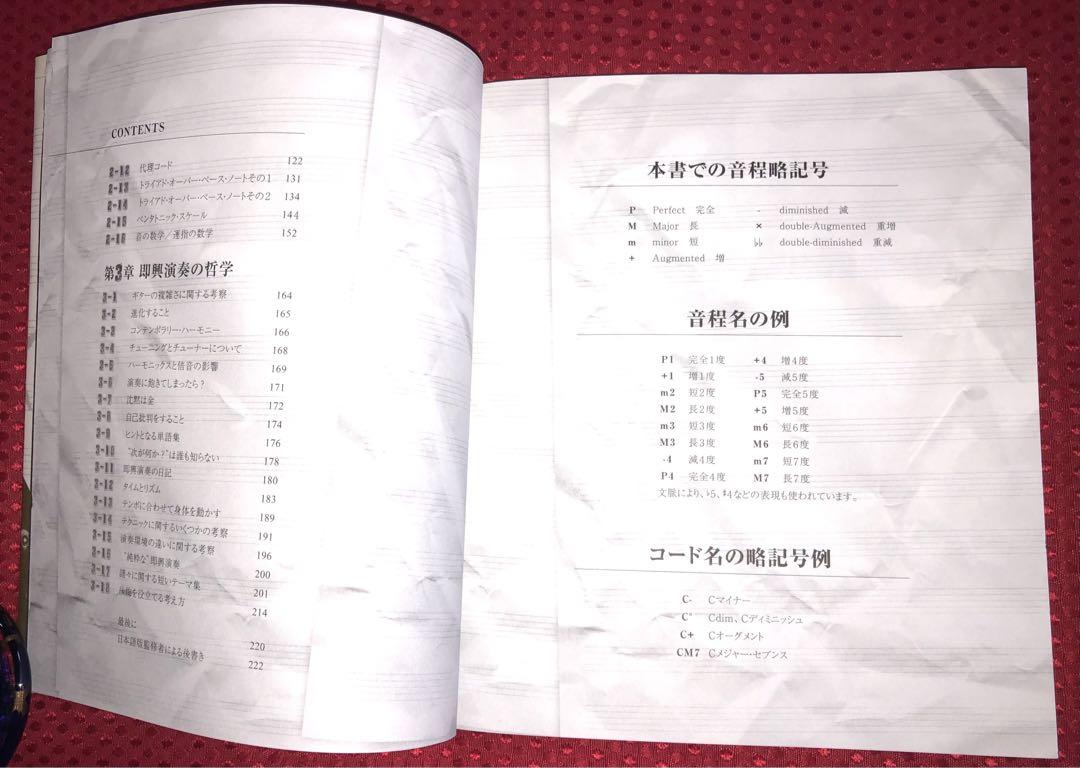 CONTENTS
2-12 代理コード 122
2-13 トライアド・オーバー・ベース・ノートその1 131
2-14 トライアド・オーバー・ベース・ノートその2 134
2-15 ペンタトニック・スケール 144
2-16 音の数学／運指の数学 152
第3章 即興演奏の哲学
3-1 ギターの複雑さに関する考察 164
3-2 進化すること 165
3-3 コンテンポラリー・ハーモニー 166
3-4 チューニングとチューナーについて 168
3-5 ハーモニックスと倍音の影響 169
3-6 演奏に飽きてしまったら？ 171
3-7 沈黙は金 172
3-8 自己批判をすること 174
3-9 ヒントとなる単語集 176
3-10 “次が何か？”は誰も知らない 178
3-11 即興演奏の日記 180
3-12 タイムとリズム 183
3-13 テンポに合わせて身体を動かす 189
3-14 テクニックに関するいくつかの考察 191
3-15 演奏環境の違いに関する考察 196
3-16 “純粋な”即興演奏 200
3-17 諸々に関する短いテーマ集 201
3-18 を役立てる考え方 214
最後に 220
日本語版監修者による後書き 222
本書での音程略記号
P Perfect 完全 - diminished 減
M Major 長 × double-Augmented 重増
m minor 短 ♭♭ double-diminished 重減
+ Augmented 増
音程名の例
P1 完全1度 +4 増4度
+1 増1度 -5 減5度
m2 短2度 P5 完全5度
M2 長2度 +5 増5度
m3 短3度 m6 短6度
M3 長3度 M6 長6度
-4 減4度 m7 短7度
P4 完全4度 M7 長7度
文脈により、♭5、♯4などの表現も使われています。
コード名の略記号例
C- Cマイナー
C° Cdim、Cディミニッシュ
C+ Cオーグメント
CM7 Cメジャー・セブンス